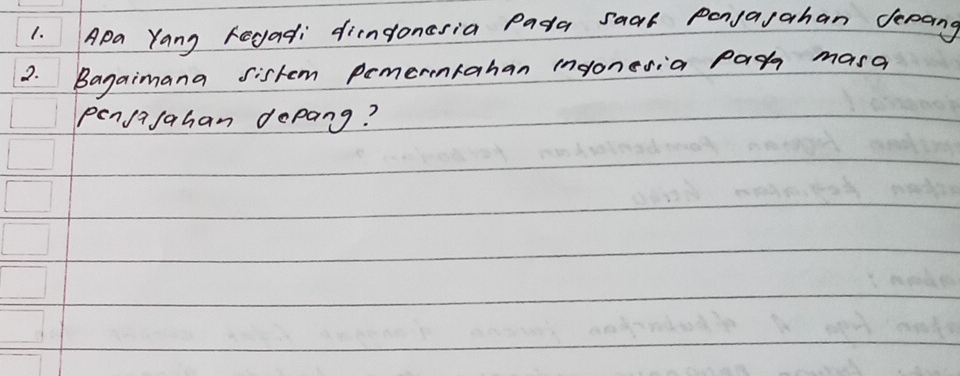 1. Apa Yang terjadi diindonesia Pada saat penjajahan Jepang
2. Bagaimana sistem pemerintahan indonesia Pada masa
penjajahan Jepang?